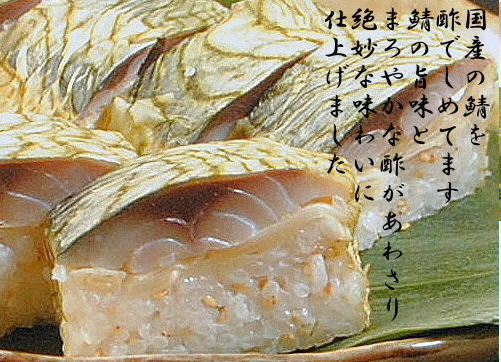 国産の鯖を
酢でしめてます
鯖の旨味と
まろやかな酢があわさり
絶妙な味わいに
仕上げました